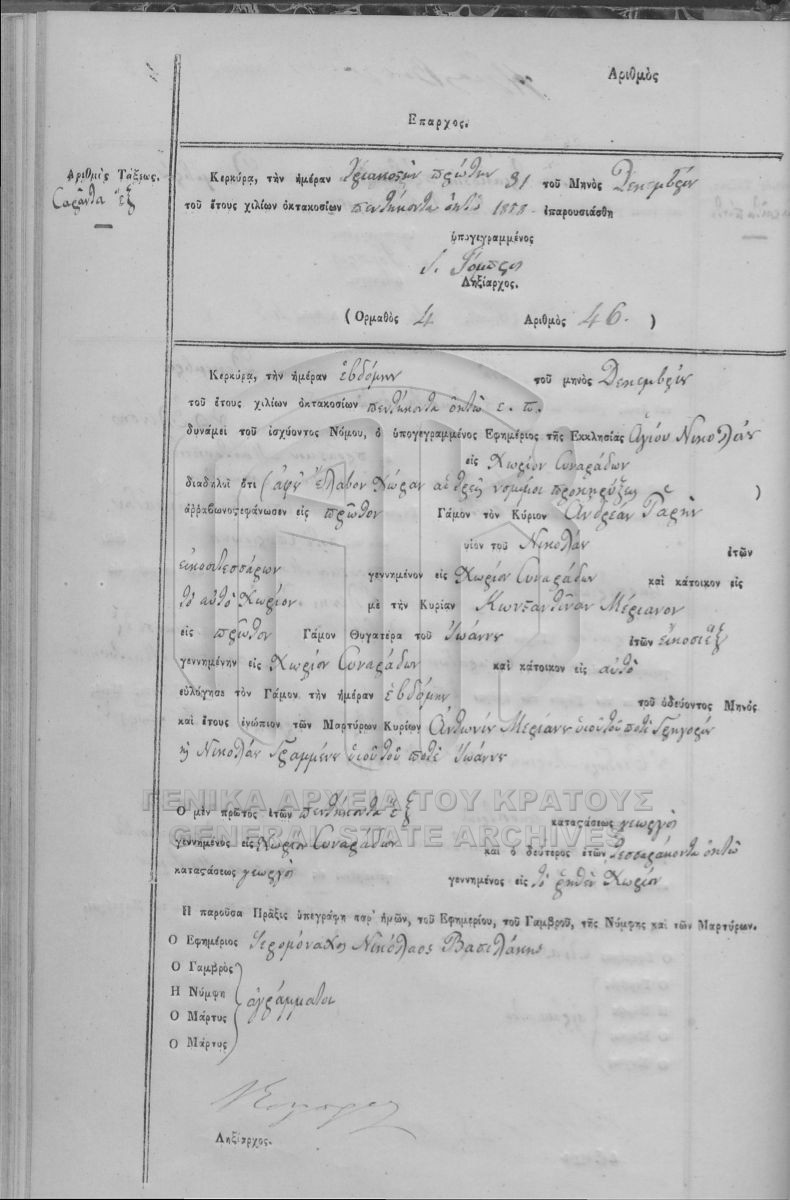 Αριθμὸς
Επαρχος.
Αριθμὸς Τάξεως.
Σαράντα ἕξ
Κερκύρα, τὴν ἡμέραν τριακοστὴν πρώτην 31 τοῦ Μηνὸς Δεκεμβρίου
τοῦ ἔτους χιλίων ὀκτακοσίων πεντήκοντα ὀκτὼ 1858 ἐπαρουσιάσθη
ὑπογεγραμμένος
Ληξίαρχος.
(Ορμαθὸς 4 Αριθμὸς 46. )
Κερκύρα, τὴν ἡμέραν ἑβδόμην τοῦ μηνὸς Δεκεμβρίου
τοῦ ἔτους χιλίων ὀκτακοσίων πεντήκοντα ὀκτὼ ε. π.
δυνάμει τοῦ ἰσχύοντος Νόμου, ὁ ὑπογεγραμμένος Εφημέριος τῆς Εκκλησίας Ἁγίου Νικολάου
εἰς Χωρίον Συναράδων
διαδηλοῖ ὅτι (ἀφοῦ ἔλαβον χώραν αἱ τρεῖς νομίμοι προκηρύξεις )
ἀρραβωνοςεφάνωσεν εἰς πρῶτον Γάμον τὸν Κύριον Ἀνδρέαν Γαρὴν
υἱὸν τοῦ Νικολάου ἐτῶν
εἰκοσιτεσσάρων γεννημένον εἰς Χωρίον Συναράδων καὶ κάτοικον εἰς
τὸ αὐτὸ Χωρίον μὲ τὴν Κυρίαν Κωνσταντῖναν Μέριανου
εἰς πρῶτον Γάμον Θυγατέρα τοῦ Ἰωάννου ἐτῶν εἰκοσιέξ
γεννημένην εἰς Χωρίον Συναράδων καὶ κάτοικον εἰς αὐτὸ
εὐλόγησε τὸν Γάμον τὴν ἡμέραν ἑβδόμην τοῦ ὁδεύοντος Μηνὸς
καὶ ἔτους ἐνώπιον τῶν Μαρτύρων Κυρίων Ἀντωνίου Μεριάνου υἱοῦ τοῦ ποτὲ Γρηγορίου
ϗ Νικολάου Γραμμένου υἱοῦ τοῦ ποτὲ Ἰωάννου
ΓΕΝΙΚΑ ΑΡΧΕΙΑ ΤΟΥ ΚΡΑΤΟΥΣ
Ο μὲν πρῶτος ἐτῶν πεντήκοντα ἓξ καταςάσεως γεωργὸς
GENERAL STATE ARCHIVES
γεννημένος εἰς Χωρίον Συναράδων καὶ ὁ δεύτερος ἐτῶν τεσσαράκοντα ὀκτὼ
καταςάσεως γεωργὸς γεννημένος εἰς τὸ ῥηθὲν Χωρίον
Η παροῦσα Πρᾶξις ὑπεγράφη παρ' ἡμῶν, τοῦ Εφημερίου, τοῦ Γαμβροῦ, τῆς Νύμφης καὶ τῶν Μαρτύρων.
Ο Εφημέριος Ἱερομόναχος Νικόλαος Βασιλάκης
Ο Γαμβρὸς
Η Νύμφη ἀγράμματοι
Ο Μάρτυς
Ο Μάρτυς
Ληξίαρχος.